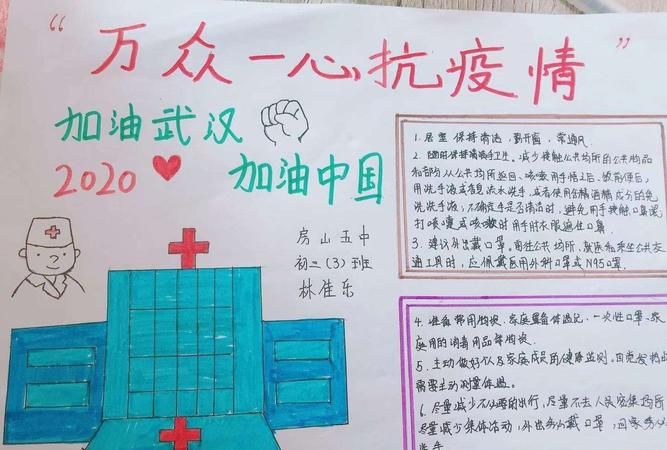 “万众一心抗疫情”
加油武汉
2020
加油中国
房山五中
初二（3）班
林佳乐
1. 居室保持清洁，勤开窗，常通风。
2. 随时保持手卫生。减少接触公共场所的公共物品
和部分，从公共场所返回、咳嗽用手捂之后、饭前便后，
用洗手液或香皂流水洗手，或者使用含酒精成分的免
洗洗手液；不确定手是否清洁时，避免用手接触口鼻眼
打喷嚏或咳嗽时用手肘衣服遮住口鼻。
3. 建议外出戴口罩。前往公共场所、就医和乘坐公共交
通工具时，应佩戴医用外科口罩或N95口罩。
4. 准备常用物资。家庭置备体温计、一次性口罩、家
庭用的消毒用品等物资。
5. 主动做好个人及家庭成员的健康监测，自觉发热时
需要主动测量体温。
6. 尽量减少不必要的出行，尽量不去人员密集场所
尽量减少集体活动，外出务必戴口罩，回家务必
洗手